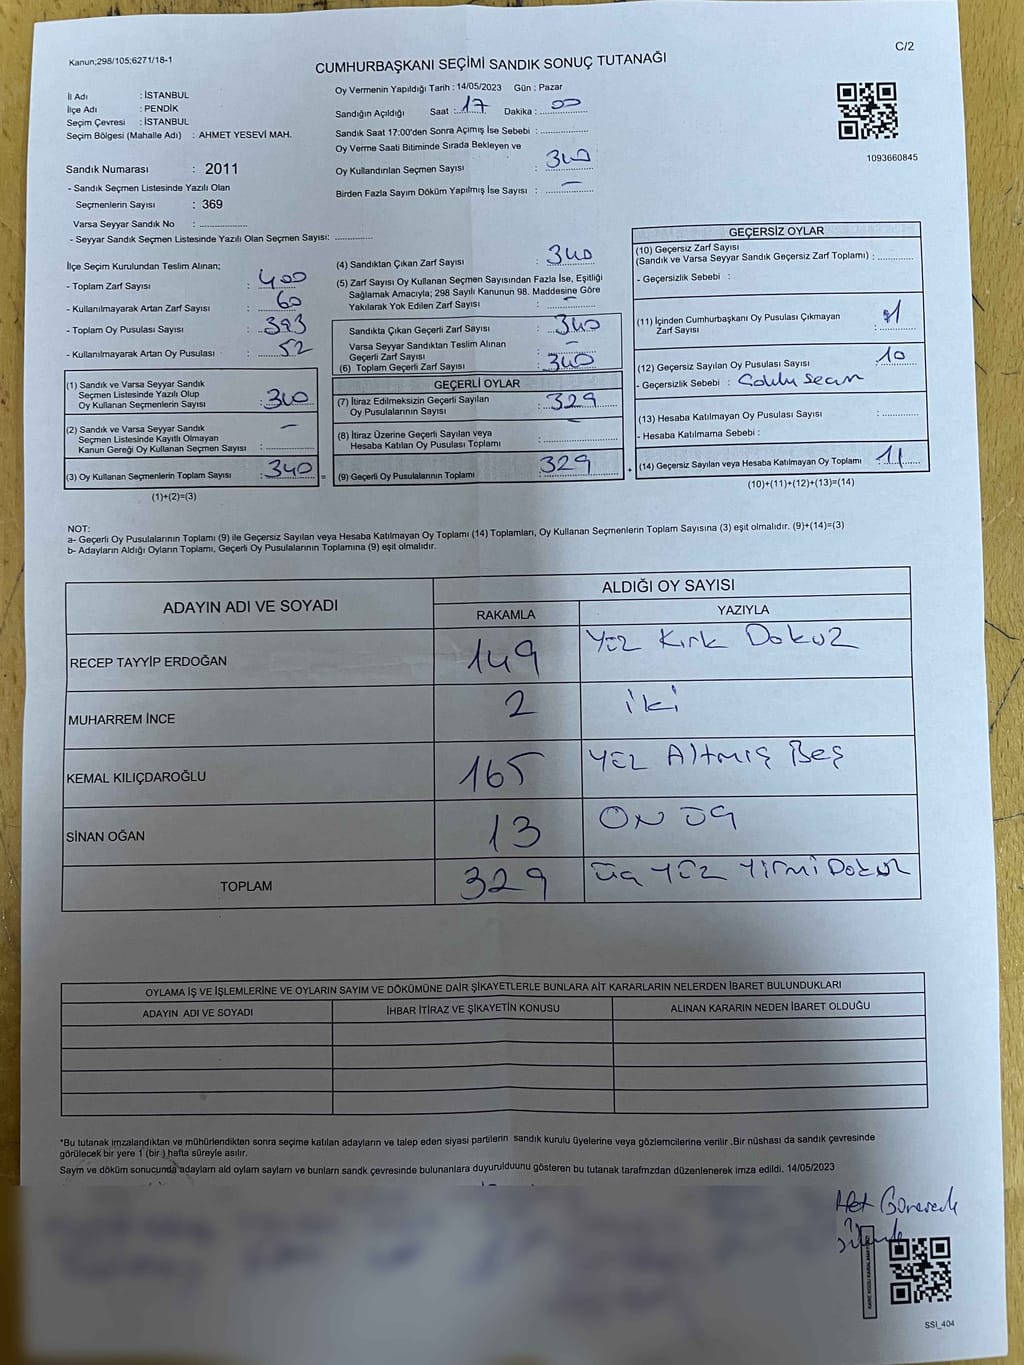 Kanun;298/105;6271/18-1
C/2
CUMHURBAŞKANI SEÇİMİ SANDIK SONUÇ TUTANAĞI
İl Adı : İSTANBUL
İlçe Adı : PENDİK
Seçim Çevresi : İSTANBUL
Seçim Bölgesi (Mahalle Adı) : AHMET YESEVİ MAH.
Sandık Numarası : 2011
- Sandık Seçmen Listesinde Yazılı Olan
Seçmenlerin Sayısı : 369
Varsa Seyyar Sandık No : ..............
- Seyyar Sandık Seçmen Listesinde Yazılı Olan Seçmen Sayısı: ..............
Oy Vermenin Yapıldığı Tarih : 14/05/2023 Gün : Pazar
Sandığın Açıldığı Saat : 17 Dakika : 00
Sandık Saat 17:00'den Sonra Açımış İse Sebebi : ..............
Oy Verme Saati Bitiminde Sırada Bekleyen ve
Oy Kullandırılan Seçmen Sayısı : 340
Birden Fazla Sayım Döküm Yapılmış İse Sayısı : —
1093660845
İlçe Seçim Kurulundan Teslim Alınan;
- Toplam Zarf Sayısı : 400
- Kullanılmayarak Artan Zarf Sayısı : 60
- Toplam Oy Pusulası Sayısı : 393
- Kullanılmayarak Artan Oy Pusulası : 52
(1) Sandık ve Varsa Seyyar Sandık
Seçmen Listesinde Yazılı Olup
Oy Kullanan Seçmenlerin Sayısı : 340
(2) Sandık ve Varsa Seyyar Sandık
Seçmen Listesinde Kayıtlı Olmayan
Kanun Gereği Oy Kullanan Seçmen Sayısı : —
(3) Oy Kullanan Seçmenlerin Toplam Sayısı : 340 =
(1)+(2)=(3)
(4) Sandıktan Çıkan Zarf Sayısı : 340
(5) Zarf Sayısı Oy Kullanan Seçmen Sayısından Fazla İse, Eşitliği
Sağlamak Amacıyla; 298 Sayılı Kanunun 98. Maddesine Göre
Yakılarak Yok Edilen Zarf Sayısı : —
Sandıkta Çıkan Geçerli Zarf Sayısı : 340
Varsa Seyyar Sandıktan Teslim Alınan
Geçerli Zarf Sayısı : —
(6) Toplam Geçerli Zarf Sayısı : 340
GEÇERLİ OYLAR
(7) İtiraz Edilmeksizin Geçerli Sayılan
Oy Pusulalarının Sayısı : 329
(8) İtiraz Üzerine Geçerli Sayılan veya
Hesaba Katılan Oy Pusulası Toplamı : —
(9) Geçerli Oy Pusulalarının Toplamı : 329 +
GEÇERSİZ OYLAR
(10) Geçersiz Zarf Sayısı
(Sandık ve Varsa Seyyar Sandık Geçersiz Zarf Toplamı) : ..............
- Geçersizlik Sebebi :
(11) İçinden Cumhurbaşkanı Oy Pusulası Çıkmayan
Zarf Sayısı : 1
(12) Geçersiz Sayılan Oy Pusulası Sayısı : 10
- Geçersizlik Sebebi :
(13) Hesaba Katılmayan Oy Pusulası Sayısı : ..............
- Hesaba Katılmama Sebebi :
(14) Geçersiz Sayılan veya Hesaba Katılmayan Oy Toplamı : 11
(10)+(11)+(12)+(13)=(14)
NOT:
a- Geçerli Oy Pusulalarının Toplamı (9) ile Geçersiz Sayılan veya Hesaba Katılmayan Oy Toplamı (14) Toplamları, Oy Kullanan Seçmenlerin Toplam Sayısına (3) eşit olmalıdır. (9)+(14)=(3)
b- Adayların Aldığı Oyların Toplamı, Geçerli Oy Pusulalarının Toplamına (9) eşit olmalıdır.
ADAYIN ADI VE SOYADI ALDIĞI OY SAYISI
RAKAMLA YAZIYLA
RECEP TAYYİP ERDOĞAN 149 Yüz Kırk Dokuz
MUHARREM İNCE 2 iki
KEMAL KILIÇDAROĞLU 165 Yüz Altmış Beş
SİNAN OĞAN 13 ON ÜÇ
TOPLAM 329 üç Yüz YirmiDokuz
OYLAMA İŞ VE İŞLEMLERİNE VE OYLARIN SAYIM VE DÖKÜMÜNE DAİR ŞİKAYETLERLE BUNLARA AİT KARARLARIN NELERDEN İBARET BULUNDUKLARI
ADAYIN ADI VE SOYADI İHBAR İTİRAZ VE ŞİKAYETİN KONUSU ALINAN KARARIN NEDEN İBARET OLDUĞU
*Bu tutanak imzalandıktan ve mühürlendikten sonra seçime katılan adayların ve talep eden siyasi partilerin sandık kurulu üyelerine veya gözlemcilerine verilir .Bir nüshası da sandık çevresinde
görülecek bir yere 1 (bir ) hafta süreyle asılır.
Sayım ve döküm sonucunda adayların ald oyların sayları ve bunların sandk çevresinde bulunanlara duyurulduunu gösteren bu tutanak tarafmzdan düzenlenerek imza edildi. 14/05/2023
SSI_404